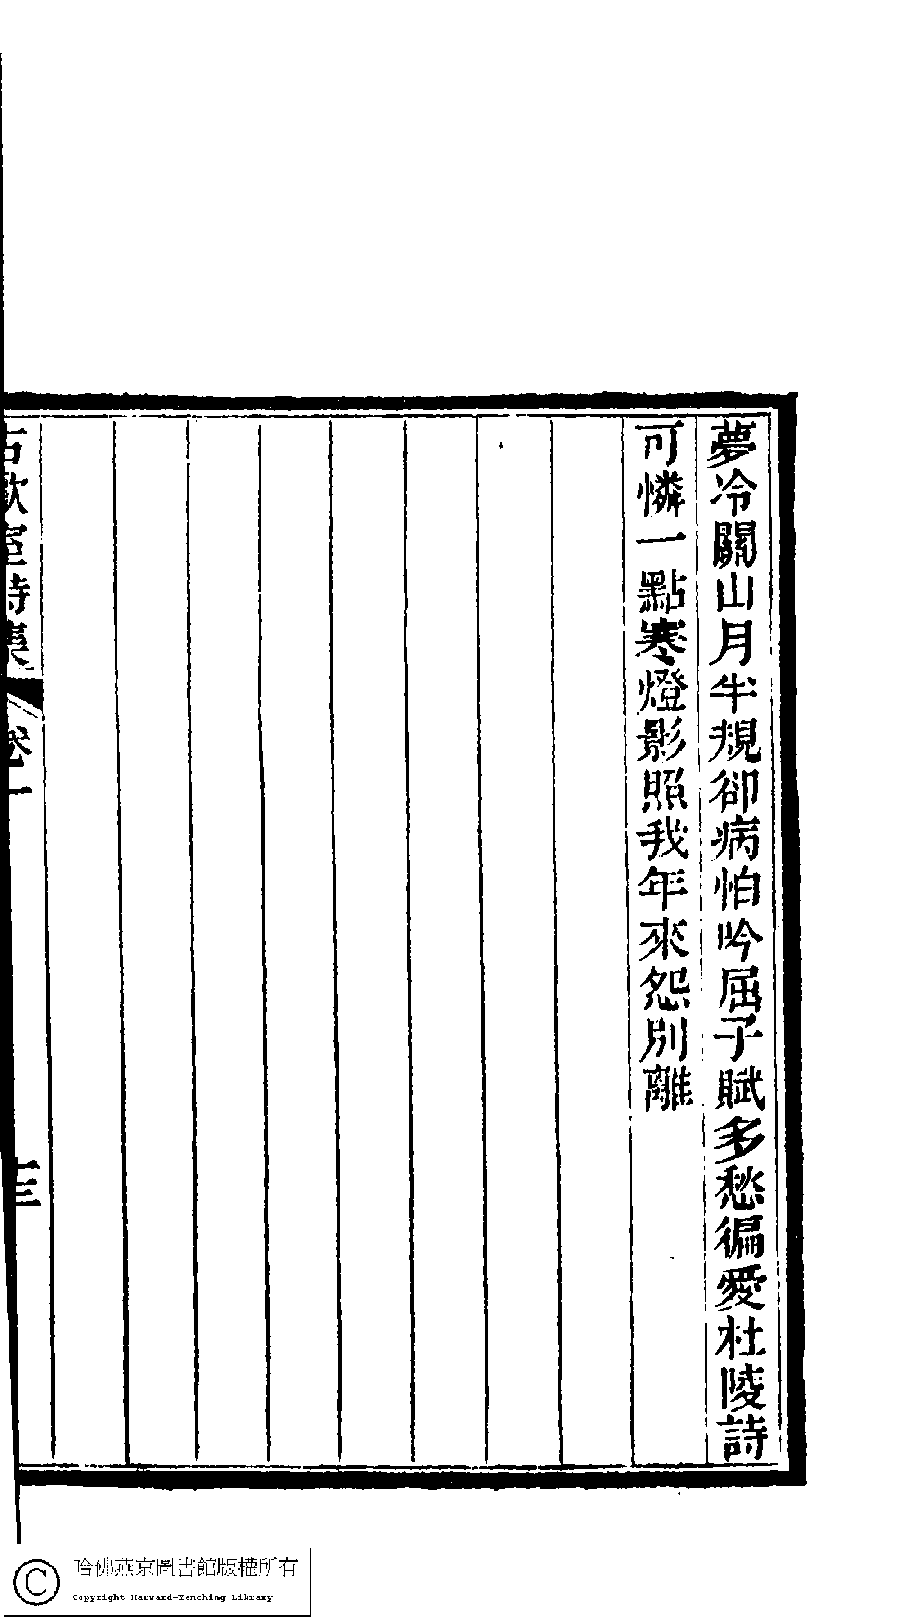 夢冷關山月半規卻病怕吟屈子賦多愁徧愛杜陵詩
可憐一點寒燈影照我年來怨別離
詩集
卷一
哈佛燕京圖書館版權所有
Copyright Harvard-Yenching Library